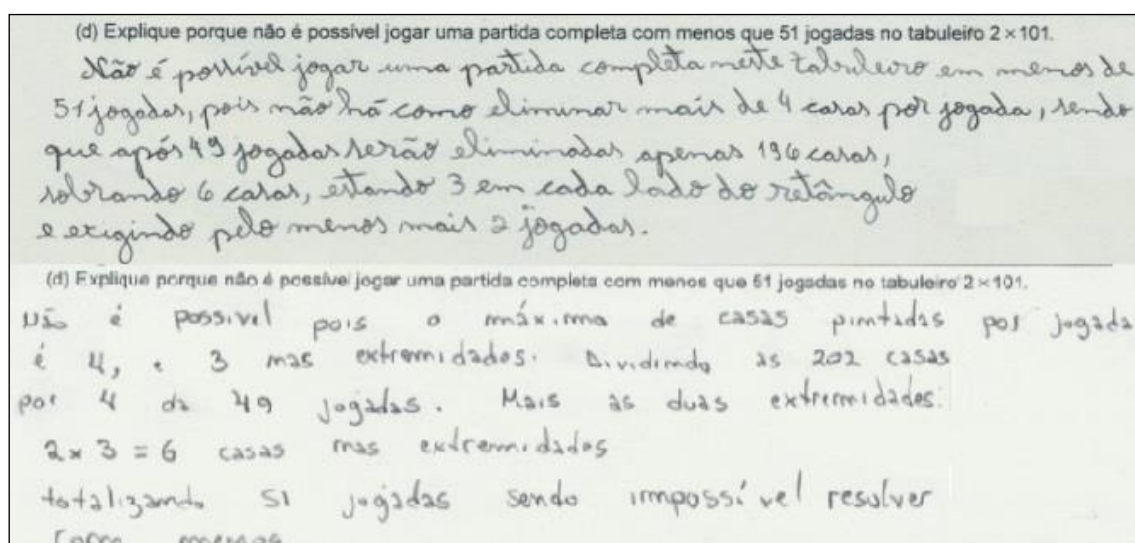 (d) Explique porque não é possível jogar uma partida completa com menos que 51 jogadas no tabuleiro 2×101.
Não é possível jogar uma partida completa neste tabuleiro em menos de
51 jogadas, pois não há como eliminar mais de 4 casas por jogada, sendo
que após 49 jogadas serão eliminadas apenas 196 casas,
sobrando 6 casas, estando 3 em cada lado do retângulo
e exigindo pelo menos mais 2 jogadas.
(d) Explique porque não é possível jogar uma partida completa com menos que 51 jogadas no tabuleiro 2×101.
Não é possivel pois o máximo de casas pintadas por jogada
é 4, e 3 nas extremidades. Dividindo as 202 casas
por 4 dá 49 jogadas. Mais as duas extremidades.
2 x 3 = 6 casas nas extremidades
totalizando 51 jogadas sendo impossível resolver
com menos